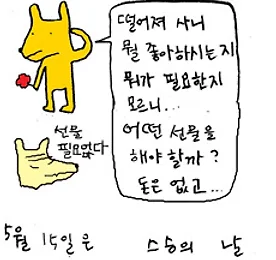 떨어져 사니
뭘 좋아하시는지
뭐가 필요한지
모르니...
어떤 선물을
해야 할까?
돈은 없고...
선물
필요없다
5월 15일은 스승의 날